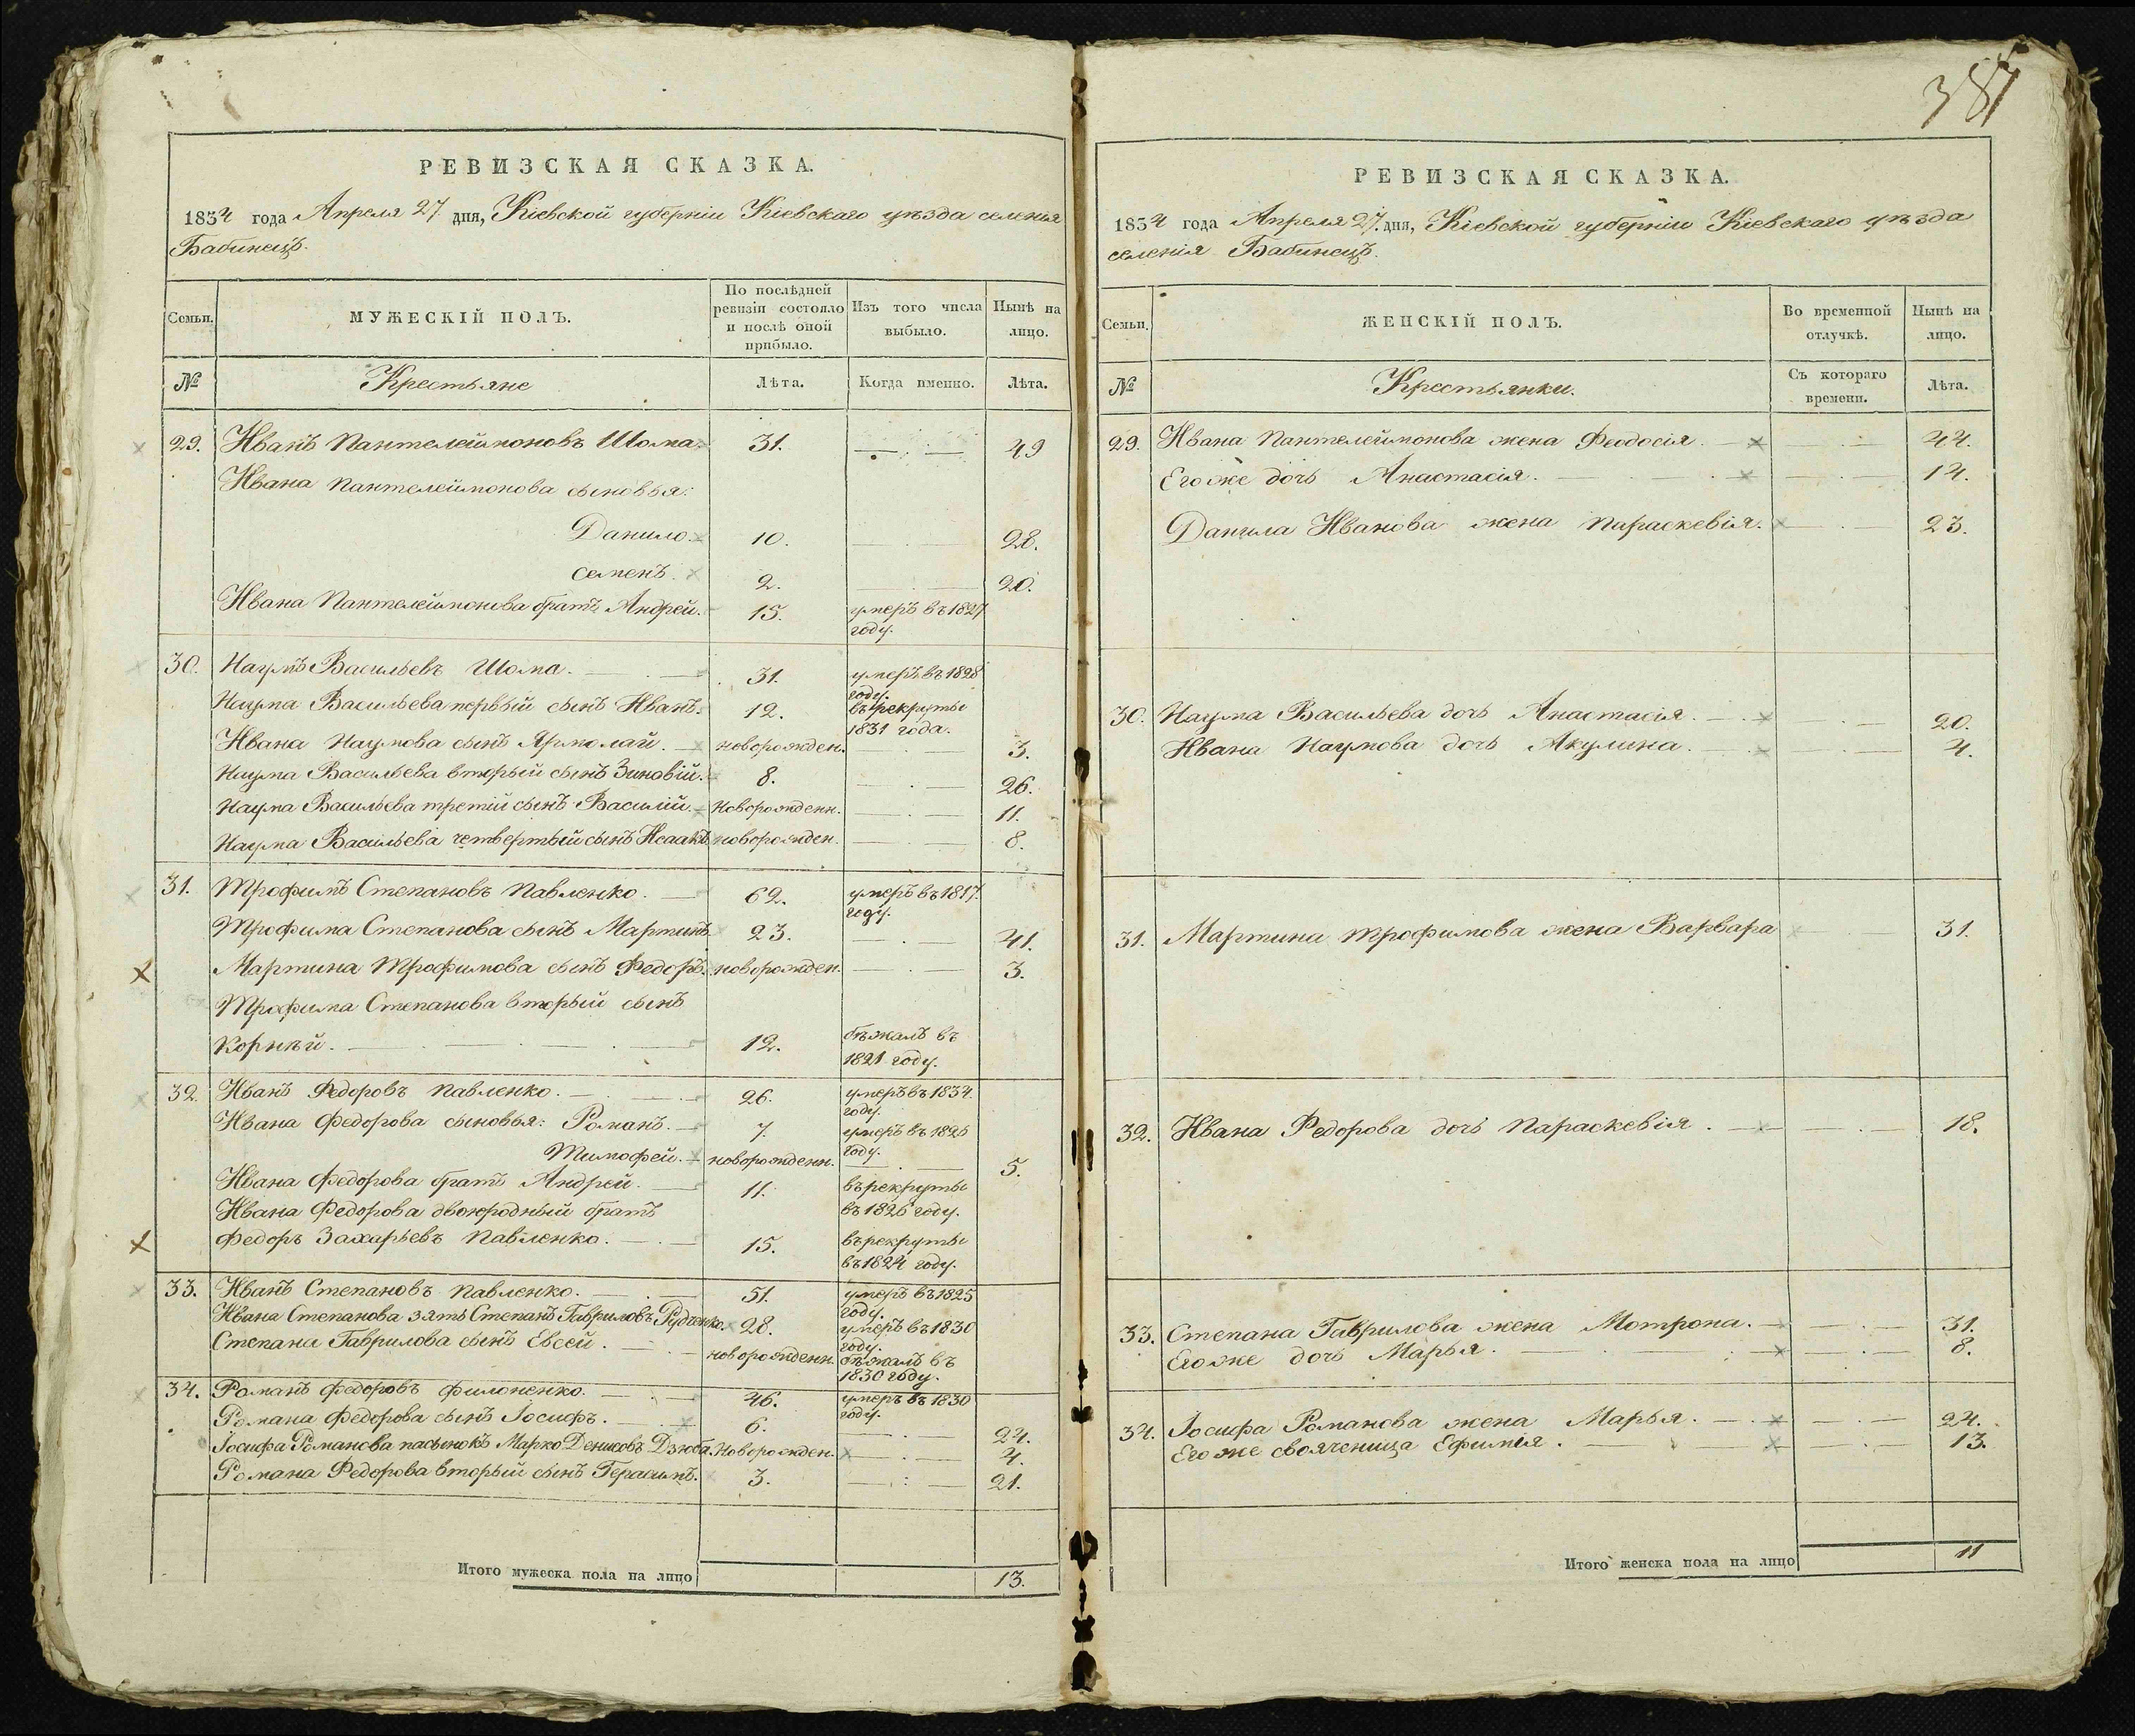 РЕВИЗСКАЯ СКАЗКА.
1834 года Апреля 27 дня, Кіевской губерніи Кіевскаго уѣзда селенія
Бабинецъ.
Семьи.
МУЖЕСКІЙ ПОЛЪ.
По послѣдней
ревизіи состояло
и послѣ оной
прибыло.
Изъ того числа
выбыло.
Нынѣ на
лицо.
№ Крестьяне Лѣта. Когда именно. Лѣта.
29. Иванъ Пантелеймоновъ Шома 31. 49
Ивана Пантелеймонова сыновья:
Данило 10. 28.
Семенъ. 2. 20.
Ивана Пантелеймонова братъ Андрей. 15. умеръ въ 1827
году.
30. Наумъ Васильевъ Шома. 31. умеръ въ 1828
году.
Наума Васильева первый сынъ Иванъ. 12. въ рекруты
1831 года.
Ивана Наумова сынъ Ярмолай. новорожден. 3.
Наума Васильева вторый сынъ Зиновій. 8. 26.
Наума Васильева третій сынъ Василій. Новорожденн. 11.
Наума Васильева четвертый сынъ Исаакъ новорожден. 8.
31. Трофимъ Степановъ Павленко. 62. умеръ въ 1817.
году.
Трофима Степанова сынъ Мартинъ. 23. 41.
Мартина Трофимова сынъ Федоръ. новорожден. 3.
Трофима Степанова вторый сынъ
Корнѣй. 12. бѣжалъ въ
1821 году.
32. Иванъ Федоровъ Павленко. 26. умеръ въ 1834.
году.
Ивана Федорова сыновья: Романъ. 7. умеръ въ 1826
году.
Тимофей. новорожденн. 5.
Ивана Федорова братъ Андрей. 11. въ рекруты
въ 1826 году.
Ивана Федорова двоюродный братъ
Федоръ Захарьевъ Павленко. 15. въ рекруты
въ 1824 году.
33. Иванъ Степановъ Павленко. 51. умеръ въ 1825
году.
Ивана Степанова зять Степанъ Гавриловъ Рудченко. 28. умеръ въ 1830
году.
Степана Гаврилова сынъ Евсей. новорожденн. бѣжалъ въ
1830 году.
34. Романъ Федоровъ Филоненко. 46. умеръ въ 1830
году.
Романа Федорова сынъ Іосифъ. 6. 24.
Іосифа Романова пасынокъ Марко Денисовъ Дзюба. Новорожден. 4.
Романа Федорова вторый сынъ Герасимъ. 3. 21.
Итого мужеска пола на лицо 13.
387
РЕВИЗСКАЯ СКАЗКА.
1834 года Апреля 27. дня, Кіевской губерніи Кіевскаго уѣзда
селенія Бабинецъ.
Семьи.
ЖЕНСКІЙ ПОЛЪ.
Во временной
отлучкѣ.
Нынѣ на
лицо.
№ Крестьянки.
Съ котораго
времени.
Лѣта.
29. Ивана Пантелеймонова жена Феодосія. 44.
Егоже дочь Анастасія. 14.
Данила Иванова жена Параскевія. 23.
30. Наума Васильева дочь Анастасія. 20.
Ивана Наумова дочь Акулина. 4.
31. Мартина Трофимова жена Варвара 31.
32. Ивана Федорова дочь Параскевія. 18.
33. Степана Гаврилова жена Мотрона. 31.
Егоже дочь Марья. 8.
34. Іосифа Романова жена Марья. 24.
Егоже свояченица Ефимія. 13.
Итого женска пола на лицо 11